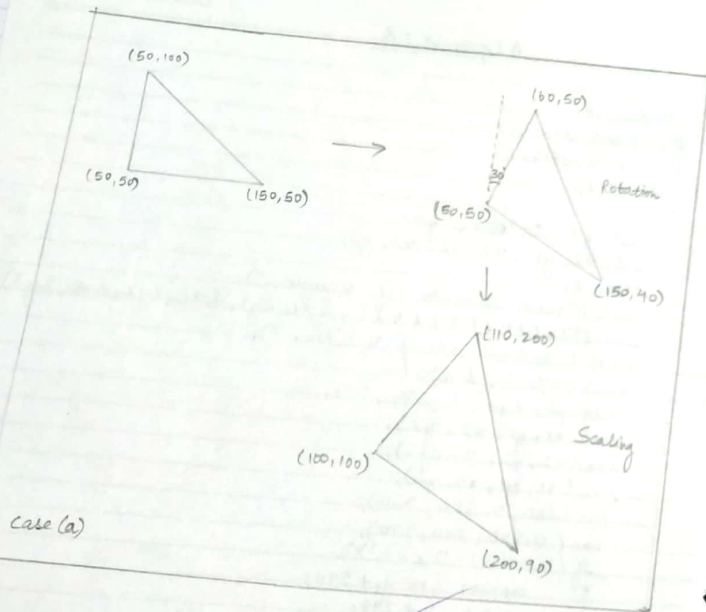 (50,100)
(50,50)
(150,50)
(60,50)
30°
(50,50)
Rotation
(150,40)
(110,200)
(100,100)
Scaling
(200,90)
Case (a)